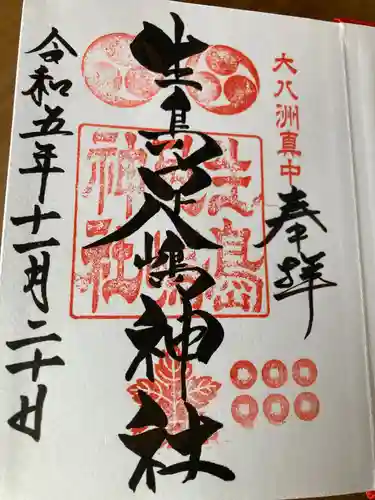 大八洲真中
奉拝
生島足嶋神社
生島足嶋神社
令和五年十一月二十日